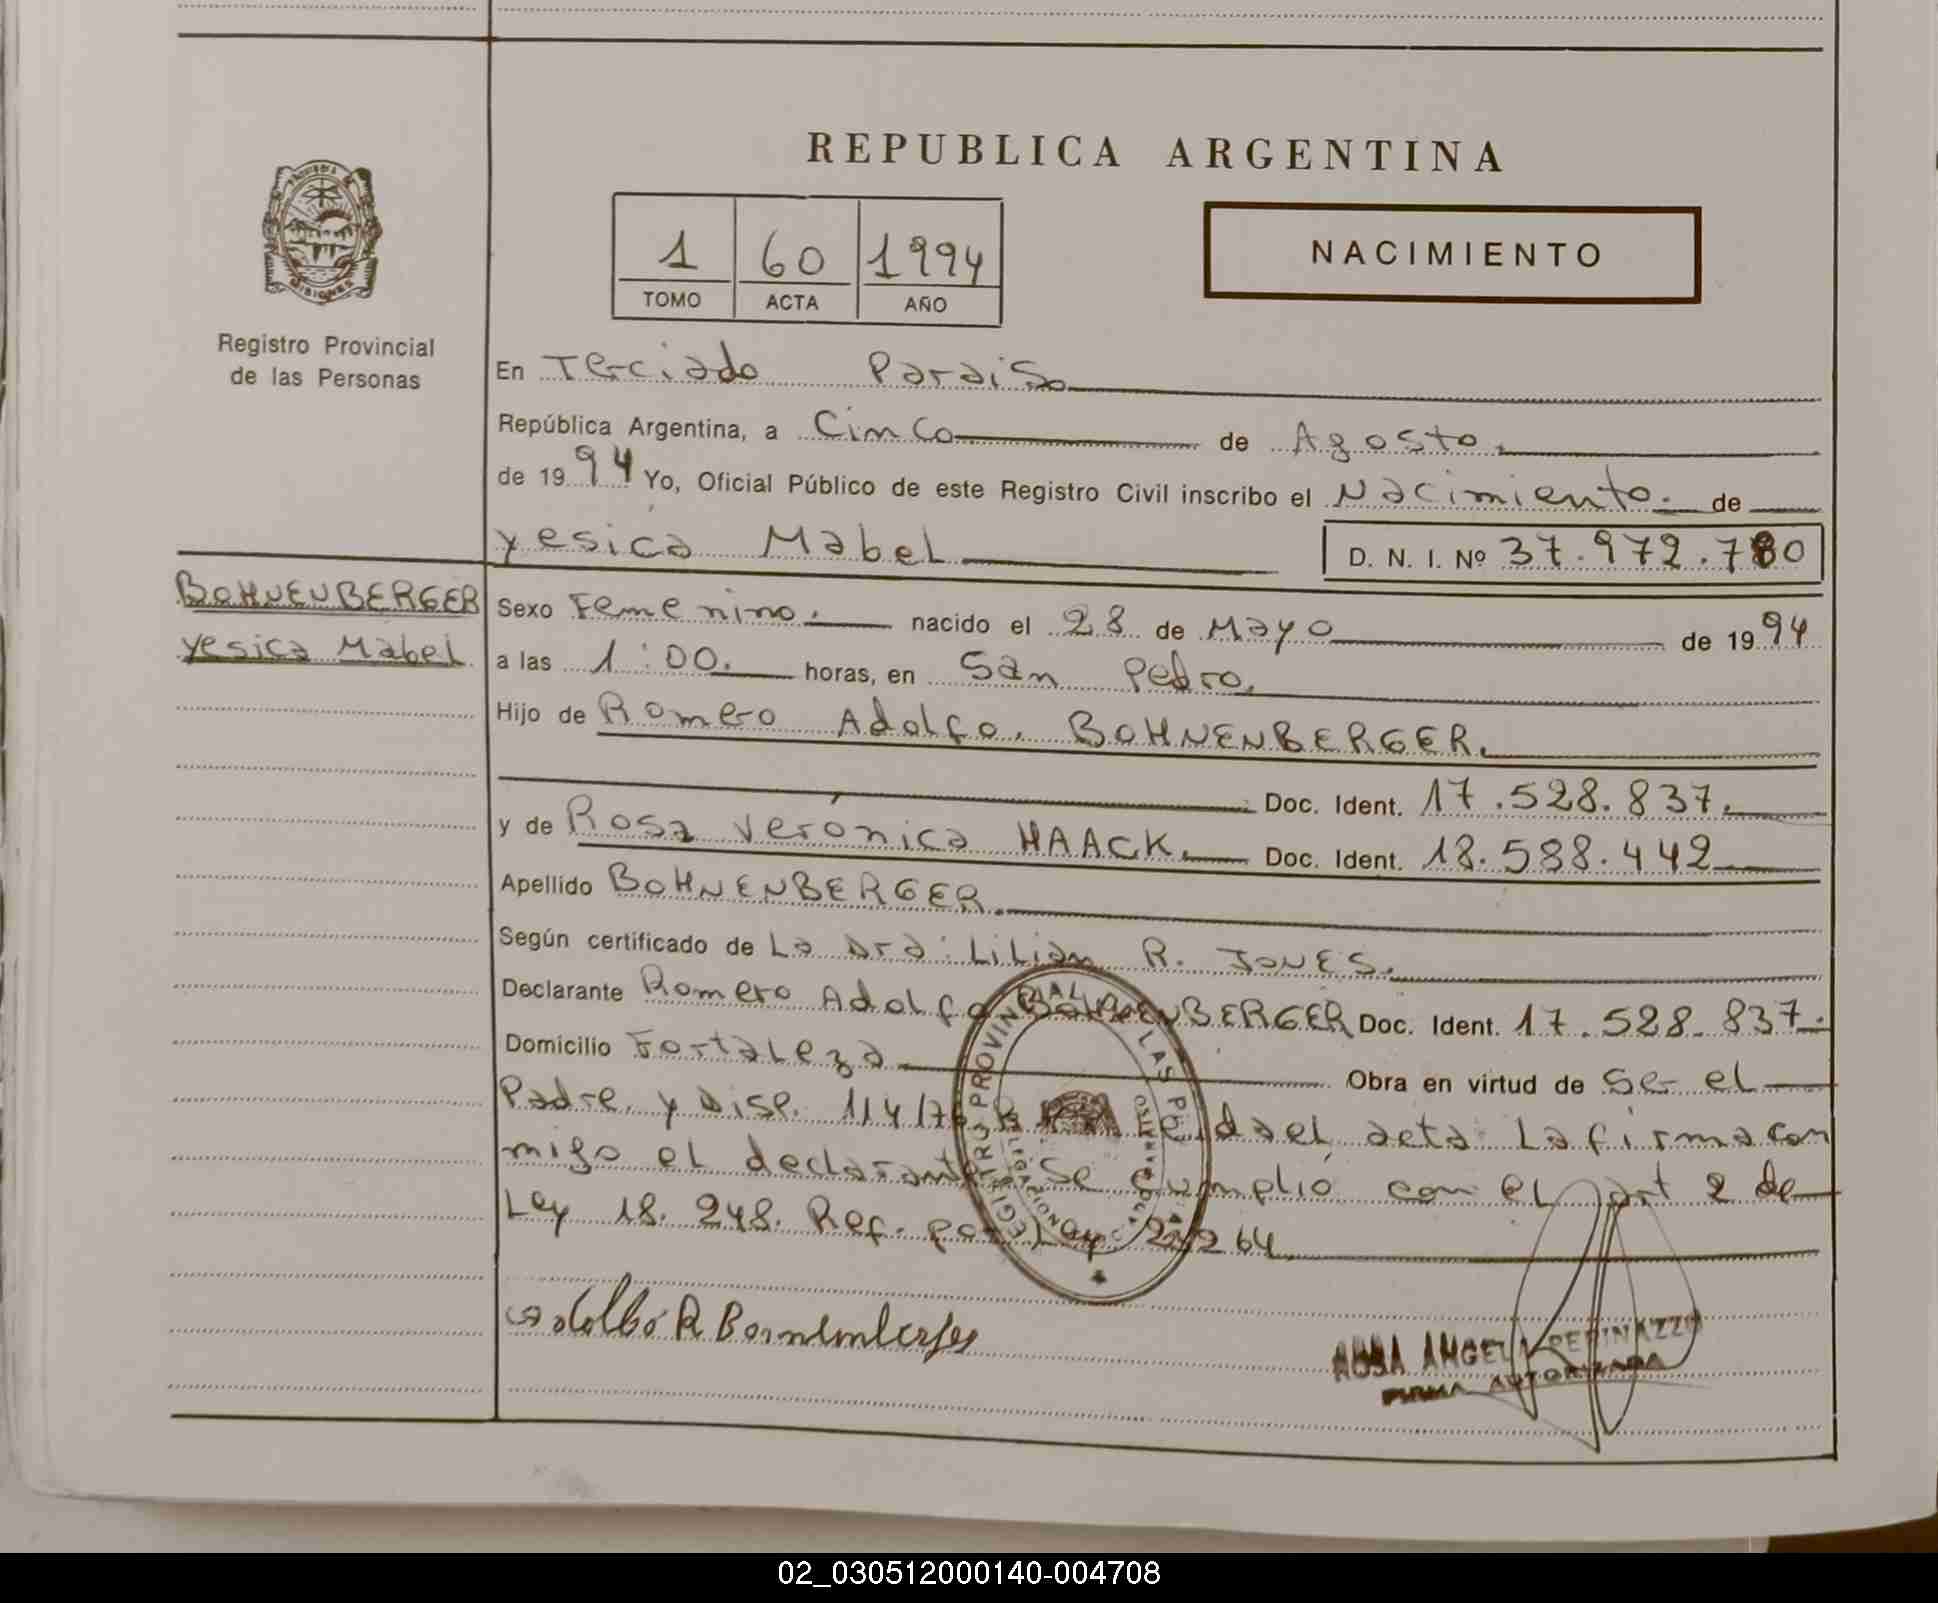 REPUBLICA ARGENTINA
1 60 1994
TOMO ACTA AÑO
NACIMIENTO
MISIONES
Registro Provincial
de las Personas
En Terciado Paraiso
República Argentina, a Cinco de Agosto.
de 1994 Yo, Oficial Público de este Registro Civil inscribo el Nacimiento. de
yesica Mabel D. N. I. Nº 37.972.780
BOHNENBERGER
yesica Mabel
Sexo Femenino. nacido el 28 de Mayo de 1994
a las 1:00. horas, en San Pedro.
Hijo de Romero Adolfo. BOHNENBERGER.
Doc. Ident. 17.528.837.
y de Rosa Verónica HAACK. Doc. Ident. 18.588.442
Apellido BOHNENBERGER.
Según certificado de La Dra: Lilian R. JONES.
Declarante Romero Adolfo BOHNENBERGER Doc. Ident. 17.528.837.
Domicilio Fortaleza Obra en virtud de Ser el
Padre, y Disp. 114/76 Leida el acta La firma con
migo el declarante. Se cumplió con el art 2 de
Ley 18.248. Ref. por Ley 264
Adolfo R Bornenberger
ANGELA PERINAZZO
FIRMA AUTORIZADA
02_030512000140-004708